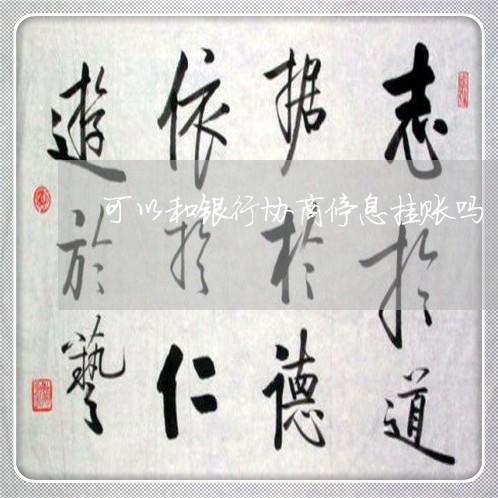 志於道
据於德
依於仁
遊於藝
可以和银行协商停息挂账吗